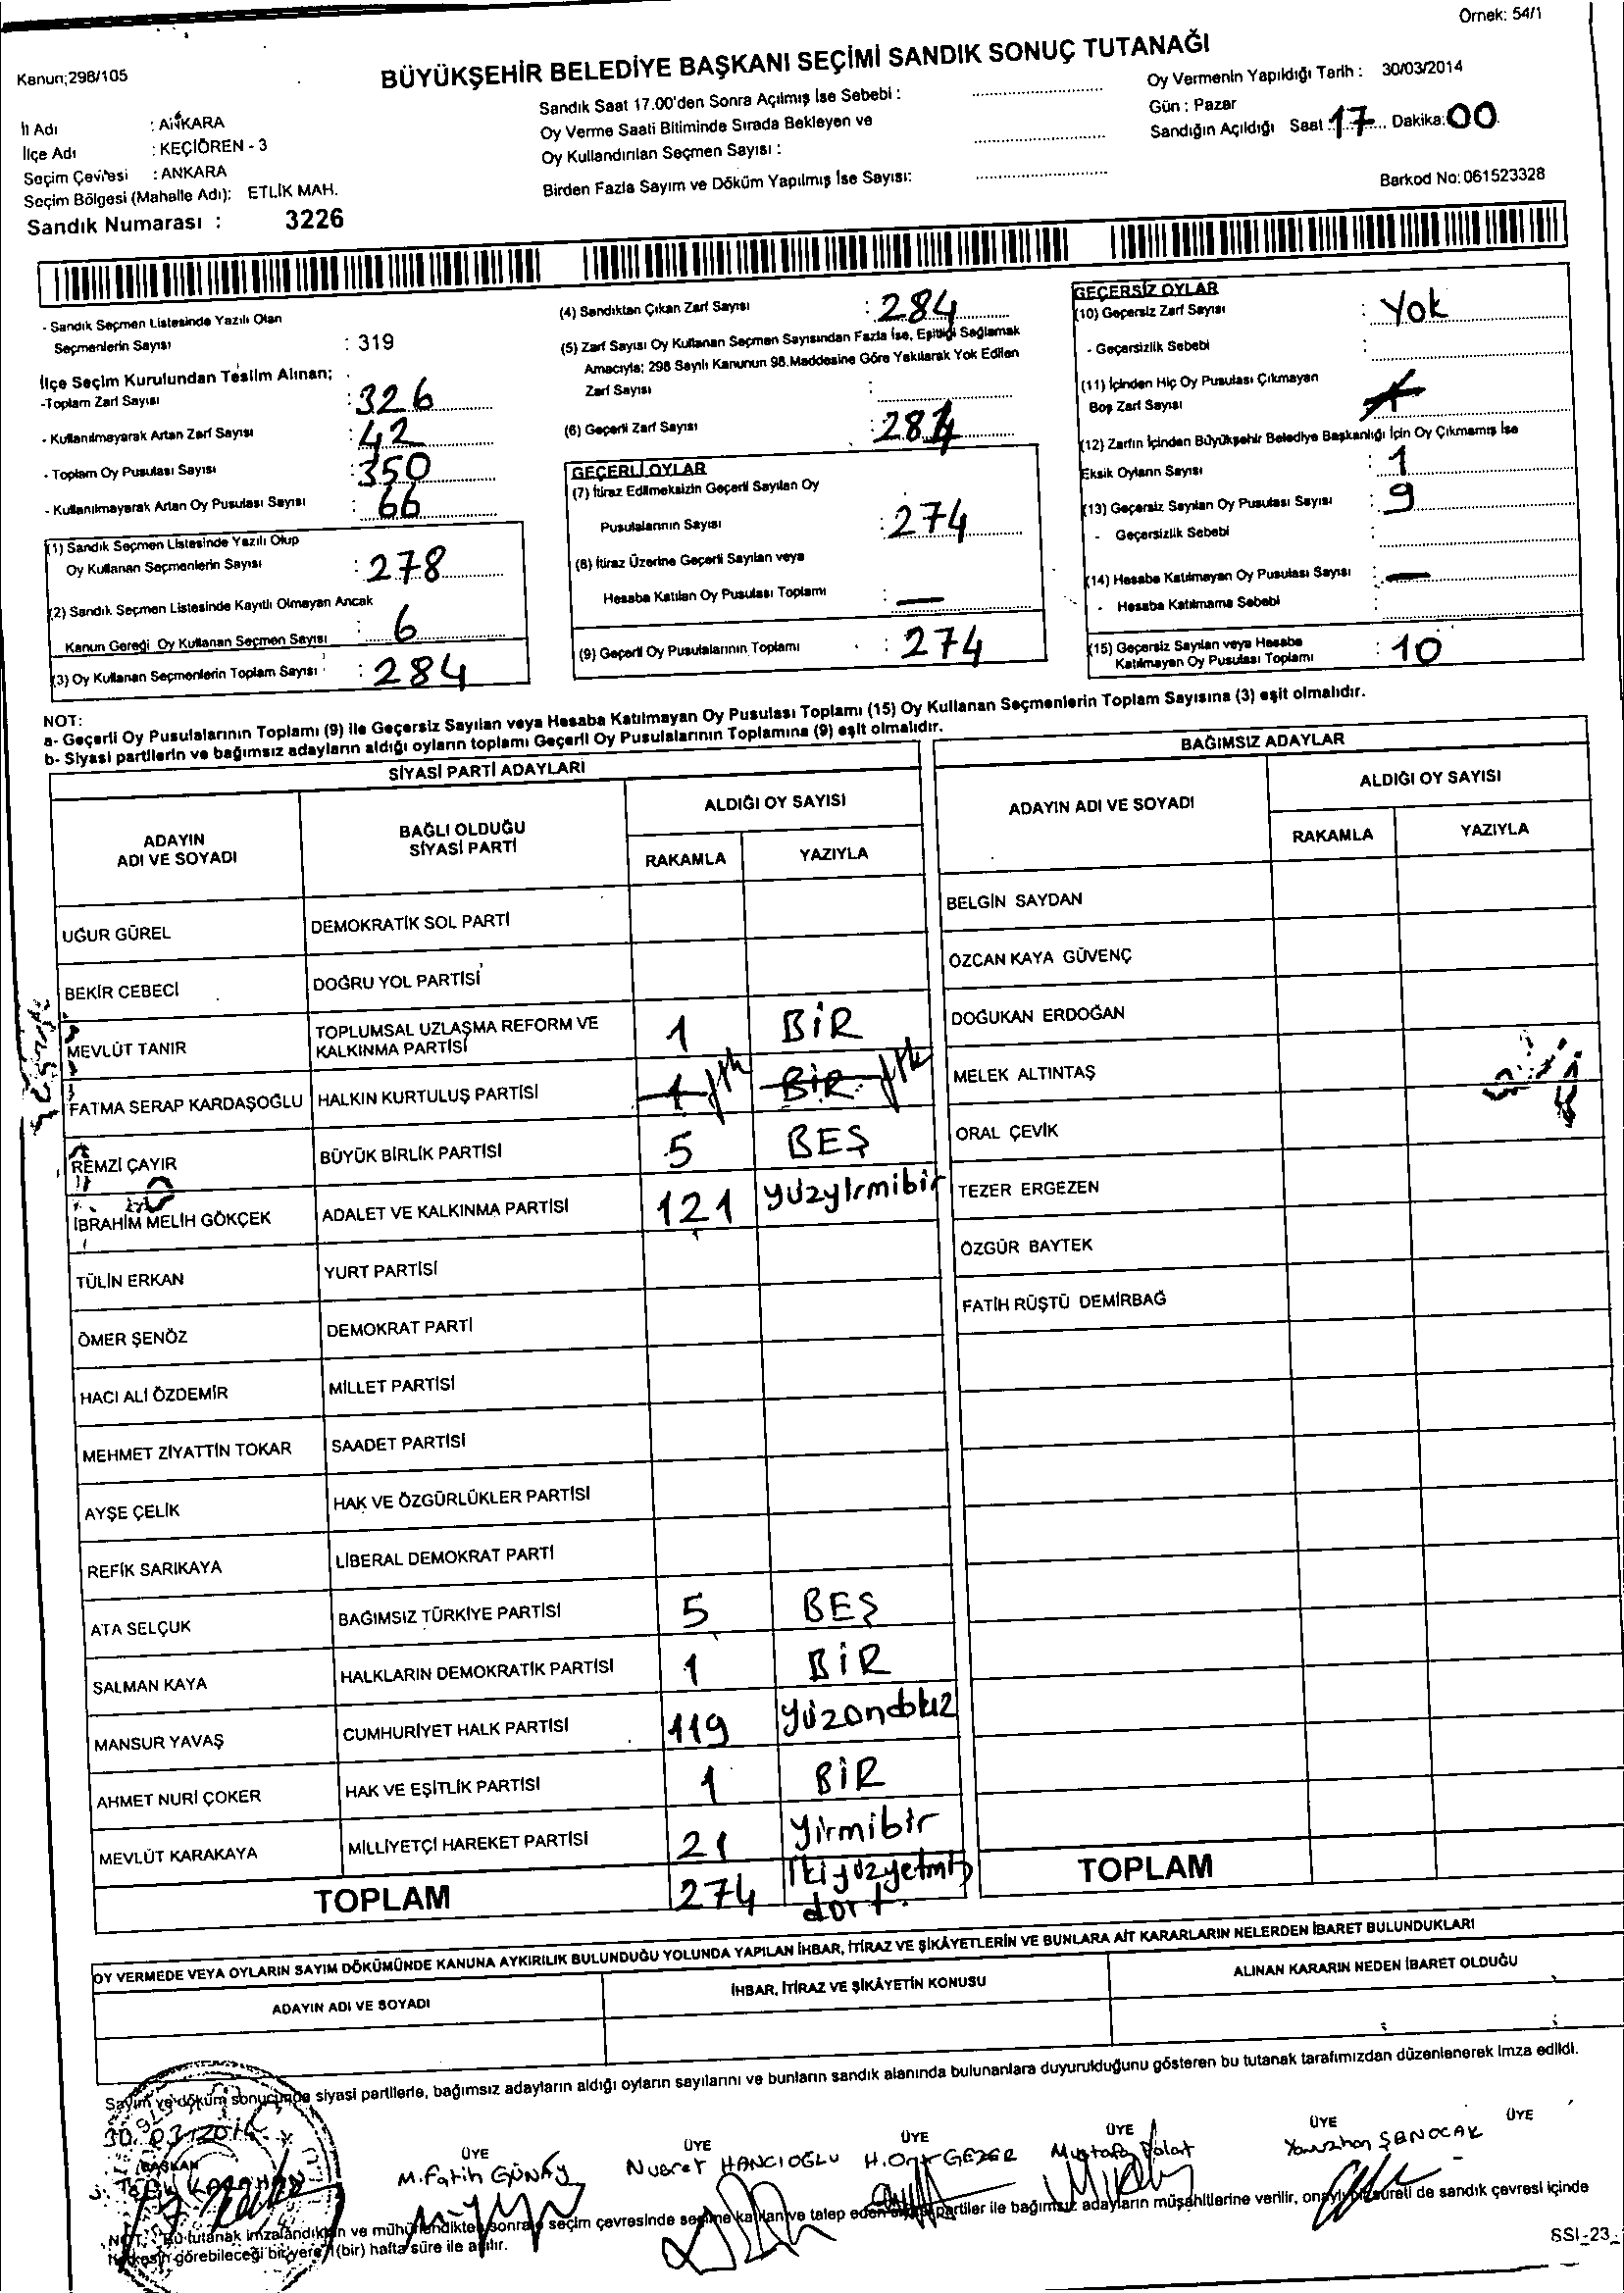 Örnek: 54/1
Kanun;298/105
BÜYÜKŞEHİR BELEDİYE BAŞKANI SEÇİMİ SANDIK SONUÇ TUTANAĞI
İl Adı : ANKARA
İlçe Adı : KEÇİÖREN - 3
Seçim Çevresi : ANKARA
Seçim Bölgesi (Mahalle Adı): ETLİK MAH.
Sandık Numarası : 3226
Sandık Saat 17.00'den Sonra Açılmış İse Sebebi :
Oy Verme Saati Bitiminde Sırada Bekleyen ve
Oy Kullandırılan Seçmen Sayısı :
Birden Fazla Sayım ve Döküm Yapılmış İse Sayısı:
Oy Vermenin Yapıldığı Tarih : 30/03/2014
Gün : Pazar
Sandığın Açıldığı Saat 17 Dakika: 00
Barkod No: 061523328
- Sandık Seçmen Listesinde Yazılı Olan
Seçmenlerin Sayısı : 319
İlçe Seçim Kurulundan Teslim Alınan;
-Toplam Zarf Sayısı : 326
- Kullanılmayarak Artan Zarf Sayısı : 42
- Toplam Oy Pusulası Sayısı : 350
- Kullanılmayarak Artan Oy Pusulası Sayısı : 66
(1) Sandık Seçmen Listesinde Yazılı Olup
Oy Kullanan Seçmenlerin Sayısı : 278
(2) Sandık Seçmen Listesinde Kayıtlı Olmayan Ancak
Kanun Gereği Oy Kullanan Seçmen Sayısı : 6
(3) Oy Kullanan Seçmenlerin Toplam Sayısı : 284
(4) Sandıktan Çıkan Zarf Sayısı : 284
(5) Zarf Sayısı Oy Kullanan Seçmen Sayısından Fazla İse, Eşitliği Sağlamak
Amacıyla; 298 Sayılı Kanunun 98.Maddesine Göre Yakılarak Yok Edilen
Zarf Sayısı :
(6) Geçerli Zarf Sayısı : 284
GEÇERLİ OYLAR
(7) İtiraz Edilmeksizin Geçerli Sayılan Oy
Pusulalarının Sayısı : 274
(8) İtiraz Üzerine Geçerli Sayılan veya
Hesaba Katılan Oy Pusulası Toplamı : —
(9) Geçerli Oy Pusulalarının Toplamı : 274
GEÇERSİZ OYLAR
(10) Geçersiz Zarf Sayısı : Yok
- Geçersizlik Sebebi :
(11) İçinden Hiç Oy Pusulası Çıkmayan
Boş Zarf Sayısı
(12) Zarfın İçinden Büyükşehir Belediye Başkanlığı İçin Oy Çıkmamış İse
Eksik Oyların Sayısı : 1
(13) Geçersiz Sayılan Oy Pusulası Sayısı : 9
- Geçersizlik Sebebi :
(14) Hesaba Katılmayan Oy Pusulası Sayısı : —
- Hesaba Katılmama Sebebi :
(15) Geçersiz Sayılan veya Hesaba
Katılmayan Oy Pusulası Toplamı : 10
NOT:
a- Geçerli Oy Pusulalarının Toplamı (9) ile Geçersiz Sayılan veya Hesaba Katılmayan Oy Pusulası Toplamı (15) Oy Kullanan Seçmenlerin Toplam Sayısına (3) eşit olmalıdır.
b- Siyasi partilerin ve bağımsız adayların aldığı oyların toplamı Geçerli Oy Pusulalarının Toplamına (9) eşit olmalıdır.
SİYASİ PARTİ ADAYLARI
ADAYIN ADI VE SOYADI
BAĞLI OLDUĞU SİYASİ PARTİ
ALDIĞI OY SAYISI
RAKAMLA YAZIYLA
UĞUR GÜREL DEMOKRATİK SOL PARTİ
BEKİR CEBECİ DOĞRU YOL PARTİSİ
MEVLÜT TANIR TOPLUMSAL UZLAŞMA REFORM VE KALKINMA PARTİSİ 1 BİR
FATMA SERAP KARDAŞOĞLU HALKIN KURTULUŞ PARTİSİ 1 BİR
REMZİ ÇAYIR BÜYÜK BİRLİK PARTİSİ 5 BEŞ
İBRAHİM MELİH GÖKÇEK ADALET VE KALKINMA PARTİSİ 121 yüzyirmibir
TÜLİN ERKAN YURT PARTİSİ
ÖMER ŞENÖZ DEMOKRAT PARTİ
HACI ALİ ÖZDEMİR MİLLET PARTİSİ
MEHMET ZİYATTİN TOKAR SAADET PARTİSİ
AYŞE ÇELİK HAK VE ÖZGÜRLÜKLER PARTİSİ
REFİK SARIKAYA LİBERAL DEMOKRAT PARTİ
ATA SELÇUK BAĞIMSIZ TÜRKİYE PARTİSİ 5 BEŞ
SALMAN KAYA HALKLARIN DEMOKRATİK PARTİSİ 1 BİR
MANSUR YAVAŞ CUMHURİYET HALK PARTİSİ 119 yüzondokuz
AHMET NURİ ÇOKER HAK VE EŞİTLİK PARTİSİ 1 BİR
MEVLÜT KARAKAYA MİLLİYETÇİ HAREKET PARTİSİ 21 Yirmibir
TOPLAM 274 İkiyüzyetmiş dört.
BAĞIMSIZ ADAYLAR
ADAYIN ADI VE SOYADI
ALDIĞI OY SAYISI
RAKAMLA YAZIYLA
BELGİN SAYDAN
ÖZCAN KAYA GÜVENÇ
DOĞUKAN ERDOĞAN
MELEK ALTINTAŞ
ORAL ÇEVİK
TEZER ERGEZEN
ÖZGÜR BAYTEK
FATİH RÜŞTÜ DEMİRBAĞ
TOPLAM
OY VERMEDE VEYA OYLARIN SAYIM DÖKÜMÜNDE KANUNA AYKIRILIK BULUNDUĞU YOLUNDA YAPILAN İHBAR, İTİRAZ VE ŞİKÂYETLERİN VE BUNLARA AİT KARARLARIN NELERDEN İBARET BULUNDUKLARI
ADAYIN ADI VE SOYADI
İHBAR, İTİRAZ VE ŞİKÂYETİN KONUSU
ALINAN KARARIN NEDEN İBARET OLDUĞU
Sayım ve döküm sonucunda siyasi partilerle, bağımsız adayların aldığı oyların sayılarını ve bunların sandık alanında bulunanlara duyurulduğunu gösteren bu tutanak tarafımızdan düzenlenerek imza edildi.
30.03.2014
BAŞKAN ÜYE ÜYE ÜYE ÜYE ÜYE ÜYE
M. Fatih GÜNAY Nusret HANCIOĞLU H. GEZER Mustafa Polat ŞENOCAK
NOT: Bu tutanak imzalandıktan ve mühürlendikten sonra seçim çevresinde seçime katılan ve talep eden siyasi partiler ile bağımsız adayların müşahitlerine verilir, onaylı bir sureti de sandık çevresi içinde
herkesin görebileceği bir yere 1(bir) hafta süre ile asılır.
SSI_23_